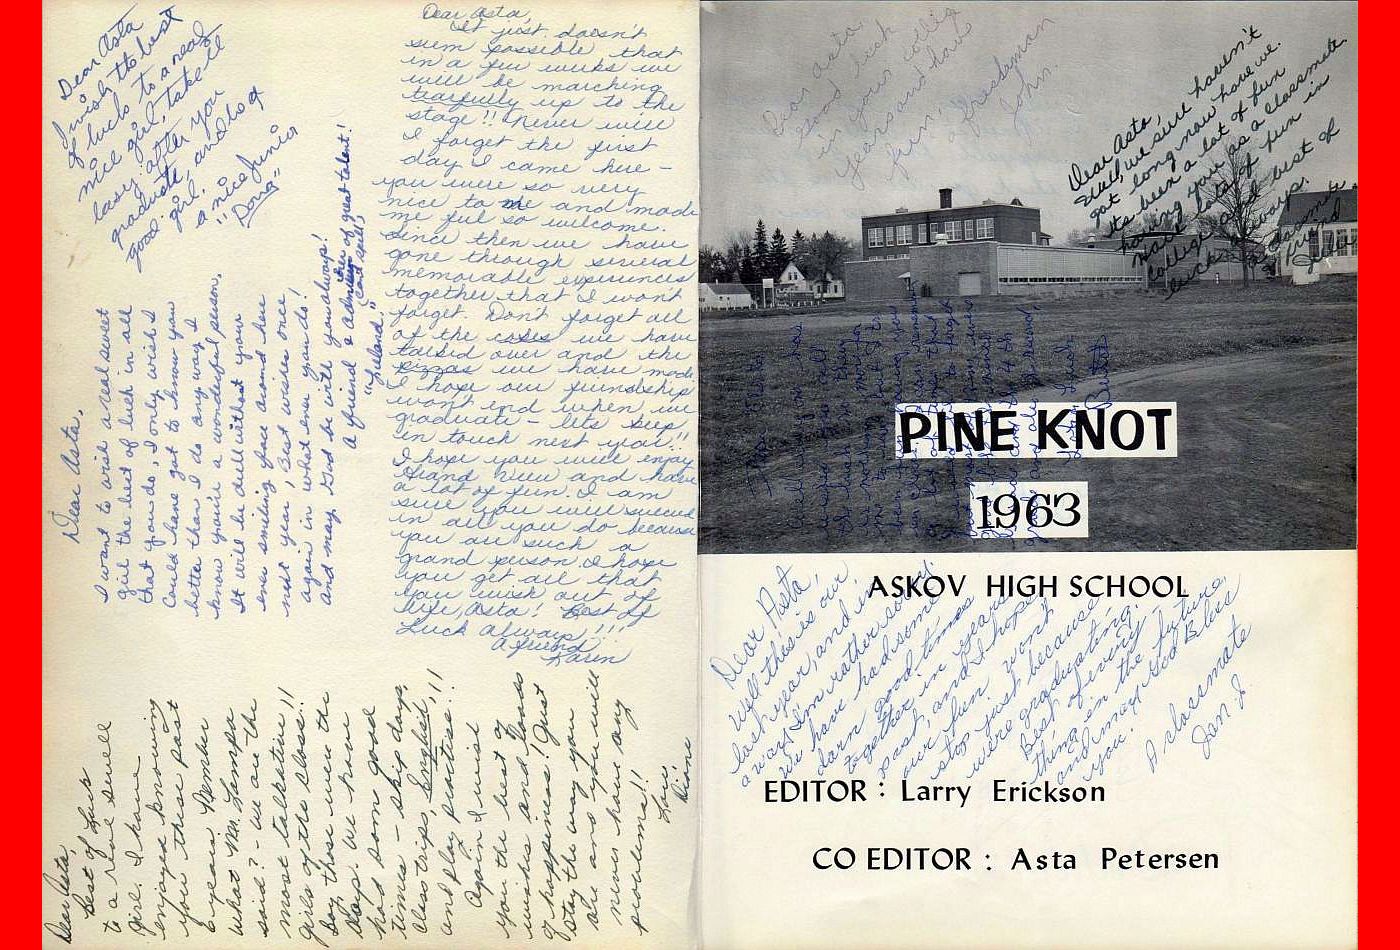 Dear Asta
I wish the best
of luck to a real
nice girl, take it
easy after you
graduate, and be a
good girl.
a nice Junior
"Doug"
Dear Asta,
It just doesn't
seem possible that
in a few weeks we
will be marching
tearfully up to the
stage!! Never will
I forget the first
day I came here –
you were so very
nice to me and made
me feel so welcome.
Since then we have
gone through several
memorable experiences
together that I won't
forget. Don't forget all
of the cokes we have
talked over and the
pizzas we have made.
I hope our friendship
won't end when we
graduate – lets keep
in touch next year!!
I hope you will enjoy
Grand View and have
a lot of fun. I am
sure you will succeed
in all you do because
you are such a
grand person. I hope
you get all that
you wish out of
life, Asta! Best of
Luck Always!!!
A friend
Karen
Dear Asta,
I want to wish a real sweet
girl the best of luck in all
that you do, I only wish I
could have got to know you
better than I do any way I
know you're a wonderful person.
It will be dull without your
ever smiling face around here
next year, Best wishes once
again in what ever you do!
And may God be with you always!
A friend & admirer of great talent!
(cant spell)
Dear Asta,
Best of Luck
to a real swell
girl. I have
enjoyed knowing
you these past
6 years. Remember
what Mrs.
said? - we are the
most talkative
girls of the class!!
Boy those were the
days. We have
had some good
times – skip days,
class trips, English,
and play practise!!
Again I wish
you the best of
wishes and loads
of happiness! Just
stay the way you
are and you will
never have any
problems!!
Love,
Dear Asta,
Good luck
in your college
years and have
fun.
a freshman
John.
Dear Asta,
Well, we sure haven't
got long now have we.
Its been a lot of fun
having you as a classmate.
Have lots of fun in
college and best of
luck always.
PINE KNOT
1963
ASKOV HIGH SCHOOL
Dear Asta,
Well this is our
last year, and in
a way I'm rather sorry.
We have had some
darn good times
together in years
past, and I hope
our fun wont
stop just because
were graduating.
Best of every
thing in the future,
and may God Bless
you.
A classmate
Jan J.
EDITOR : Larry Erickson
CO EDITOR : Asta Petersen